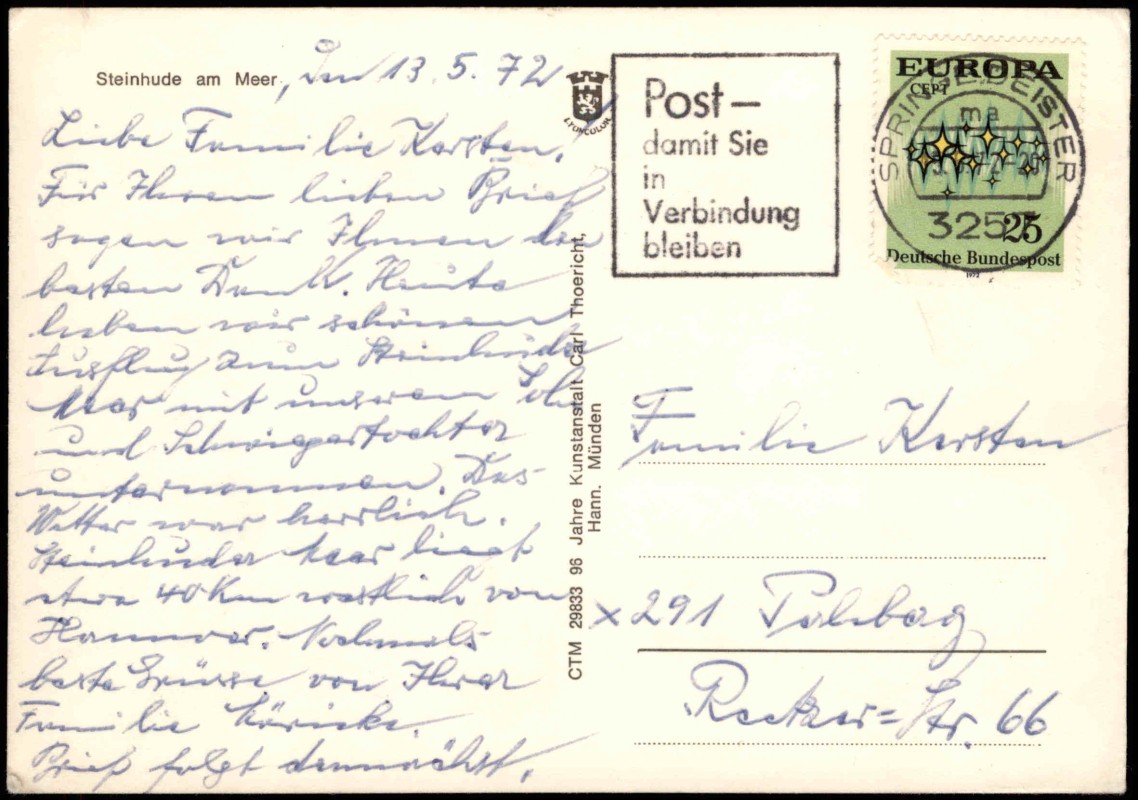 Steinhude am Meer, Den 13.5.72
Liebe Familie Kersten!
Für Ihren lieben Brief
sagen wir Ihnen den
besten Dank. Heute
haben wir schönen
Ausflug zum Steinhuder
Meer mit unserem Sohn
und Schwiegertochter
unternommen. Das
Wetter war herrlich.
Steinhuder Meer liegt
etwa 40 Km westlich von
Hannover. Nochmals
beste Grüsse von Ihrer
Familie
Brief folgt demnächst.
LYDICOLOR
CTM 29833 96 Jahre Kunstanstalt Carl Thoericht,
Hann. Münden
Post –
damit Sie
in
Verbindung
bleiben
EUROPA
CEPT
25
Deutsche Bundespost
1972
SPRINGE, DEISTER
ma
3257
Familie Kersten
x 291
Str. 66